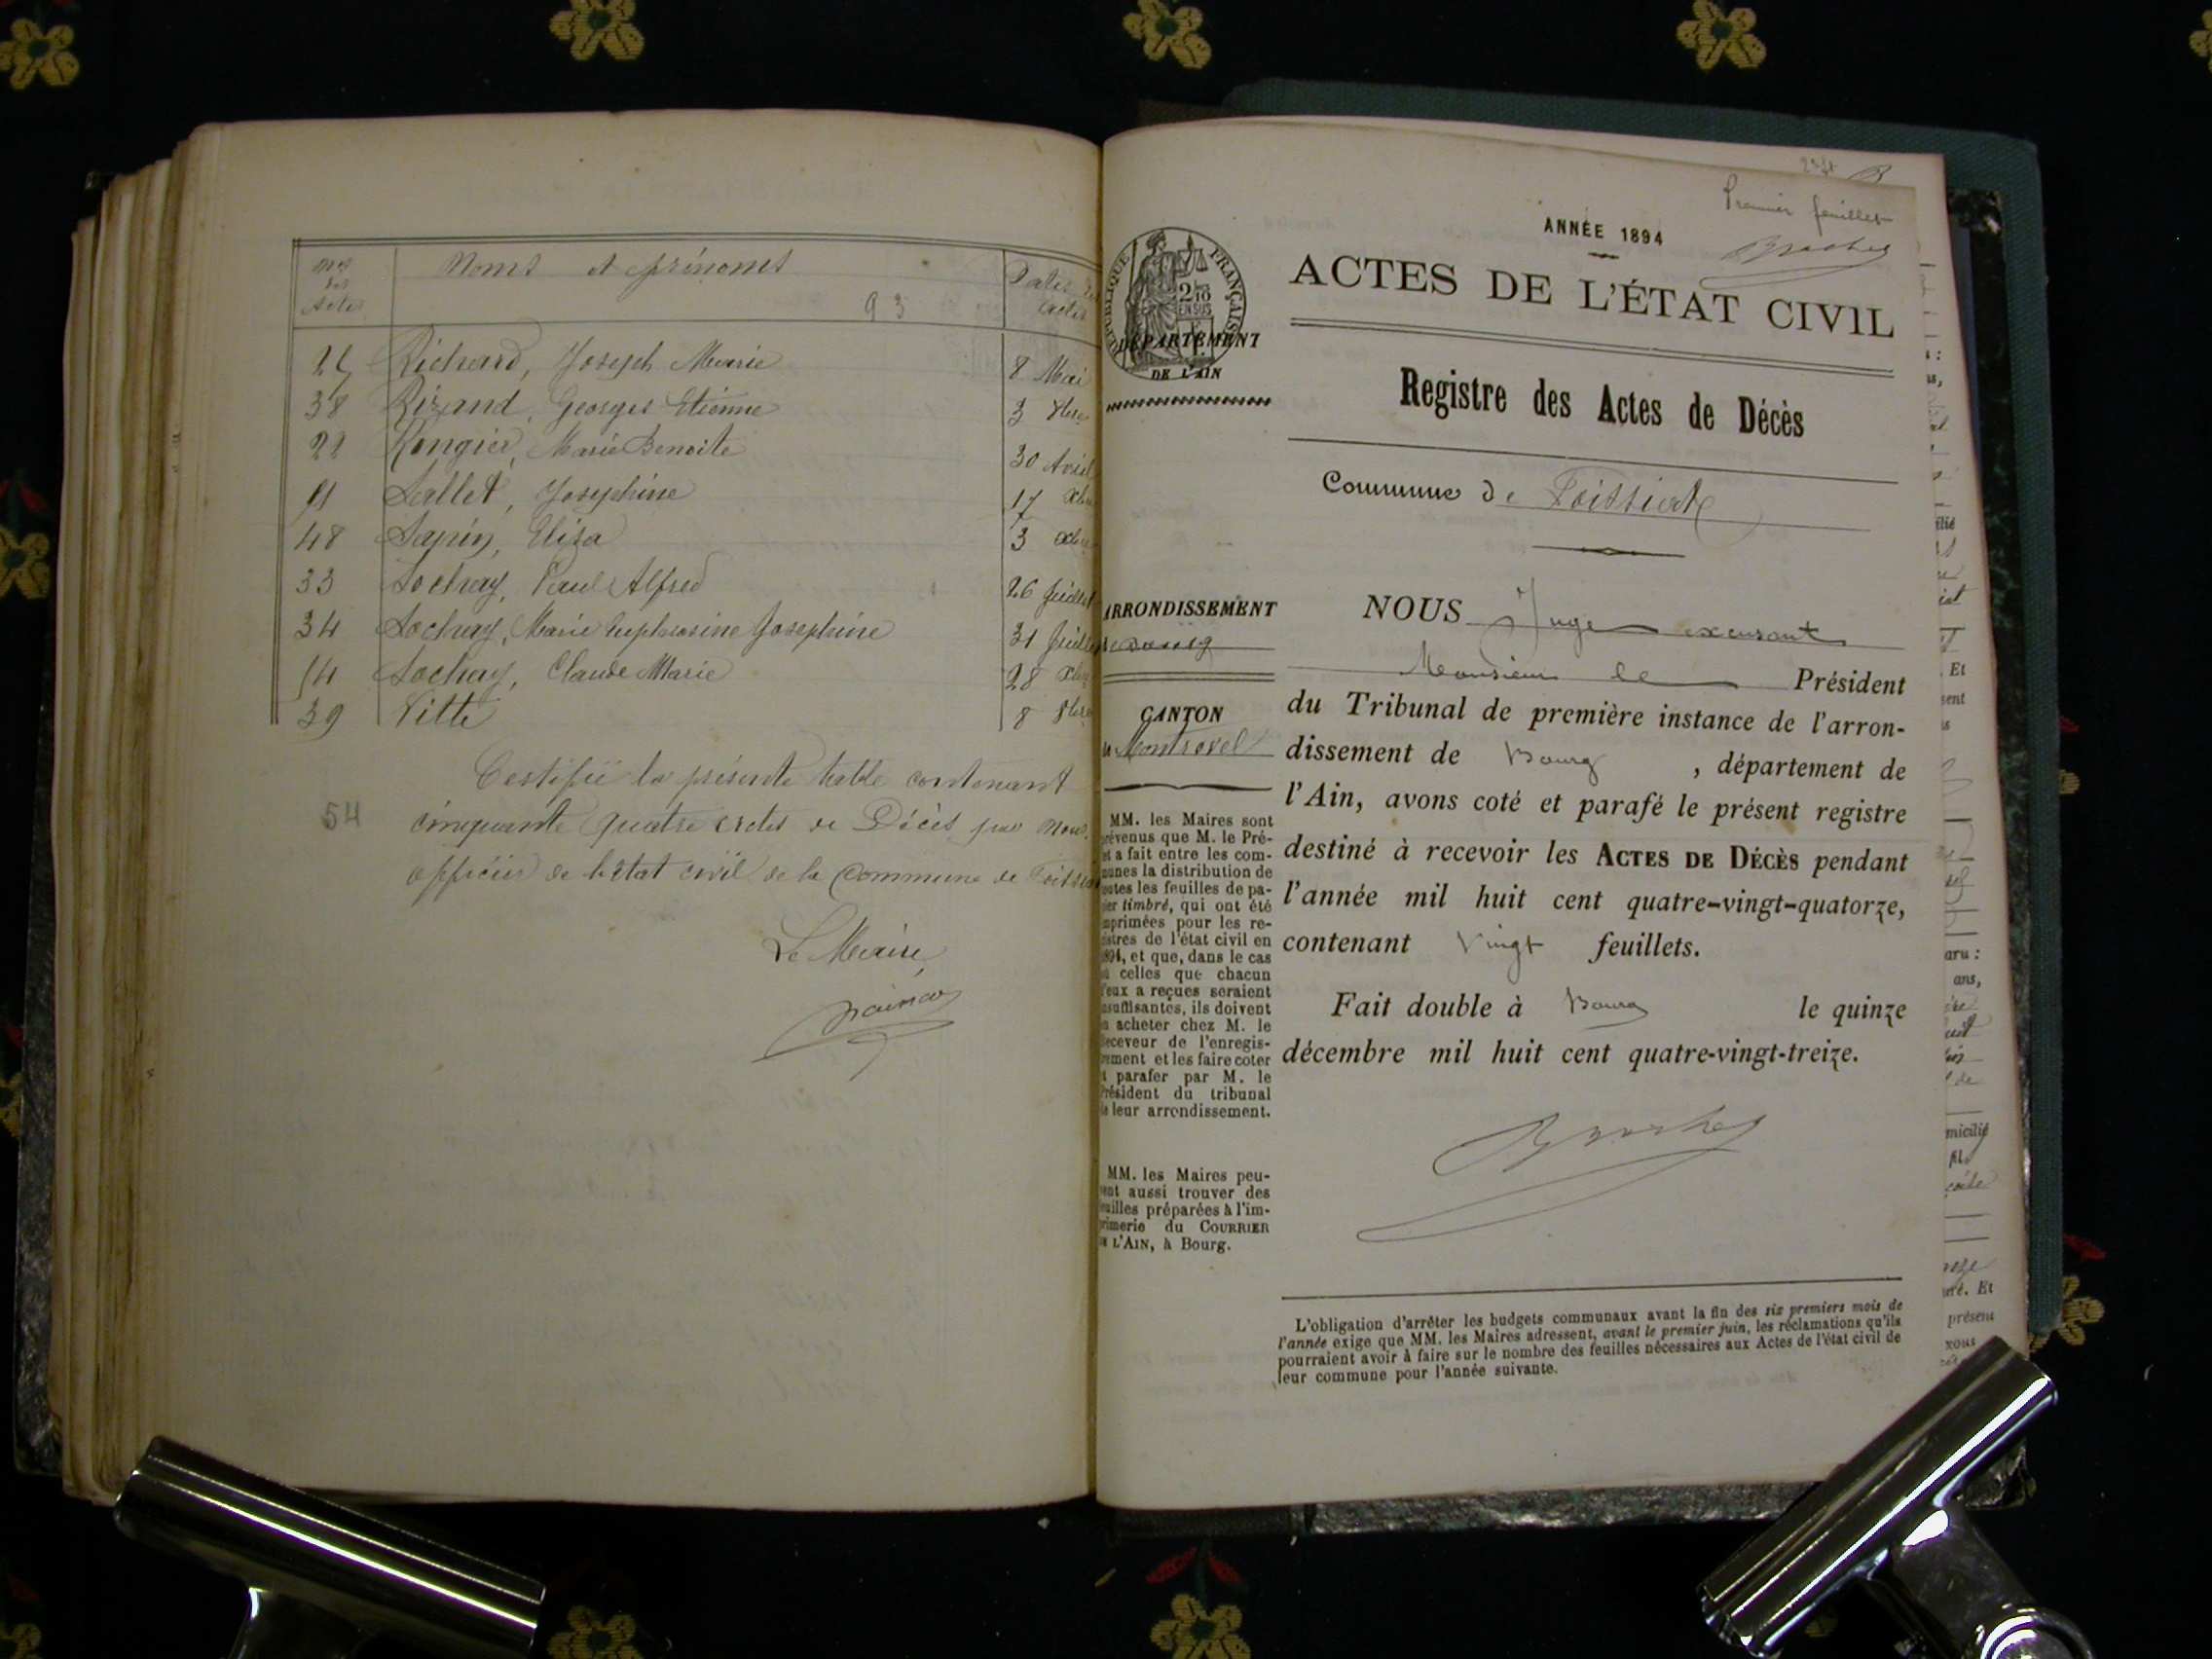 Nos des Actes
Noms et prénoms
93
Dates des Actes
Richard, Joseph Marie 8 Mai
38 Rizand, Georges Etienne 3 8bre
Rongier, Marie Benoite 30 Avril
Sallet, Josephine 17 Xbre
48 Sapin, Eliza 3 Xbre
33 Sochay, Paul Alfred 26 Juillet
34 Sochay, Marie Euphrosine Josephine 31 Juillet
54 Sochay, Claude Marie 28 Xbre
39 Vitte 8 8bre
Certifié la présente table contenant
54
cinquante quatre actes de Décès par nous
officier de l'état civil de la Commune de Foissiat
Le Maire,
2e/4t
Premier feuillet
Brochey
ANNÉE 1894
ACTES DE L'ÉTAT CIVIL
RÉPUBLIQUE FRANÇAISE
2/10
EN SUS
DÉPARTEMENT
DE L'AIN
Registre des Actes de Décès
Commune de Foissiat
ARRONDISSEMENT
de Bourg
CANTON
de Montrevel
MM. les Maires sont
prévenus que M. le Pré-
fet a fait entre les com-
munes la distribution de
toutes les feuilles de pa-
pier timbré, qui ont été
imprimées pour les re-
gistres de l'état civil en
1894, et que, dans le cas
où celles que chacun
d'eux a reçues seraient
insuffisantes, ils doivent
en acheter chez M. le
Receveur de l'enregis-
trement et les faire coter
et parafer par M. le
Président du tribunal
de leur arrondissement.
MM. les Maires peu-
vent aussi trouver des
feuilles préparées à l'im-
primerie du COURRIER
DE L'AIN, à Bourg.
NOUS Juge excusant
Monsieur le Président
du Tribunal de première instance de l'arron-
dissement de Bourg, département de
l'Ain, avons coté et parafé le présent registre
destiné à recevoir les ACTES DE DÉCÈS pendant
l'année mil huit cent quatre-vingt-quatorze,
contenant Vingt feuillets.
Fait double à Bourg le quinze
décembre mil huit cent quatre-vingt-treize.
L'obligation d'arrêter les budgets communaux avant la fin des six premiers mois de
l'année exige que MM. les Maires adressent, avant le premier juin, les réclamations qu'ils
pourraient avoir à faire sur le nombre des feuilles nécessaires aux Actes de l'état civil de
leur commune pour l'année suivante.